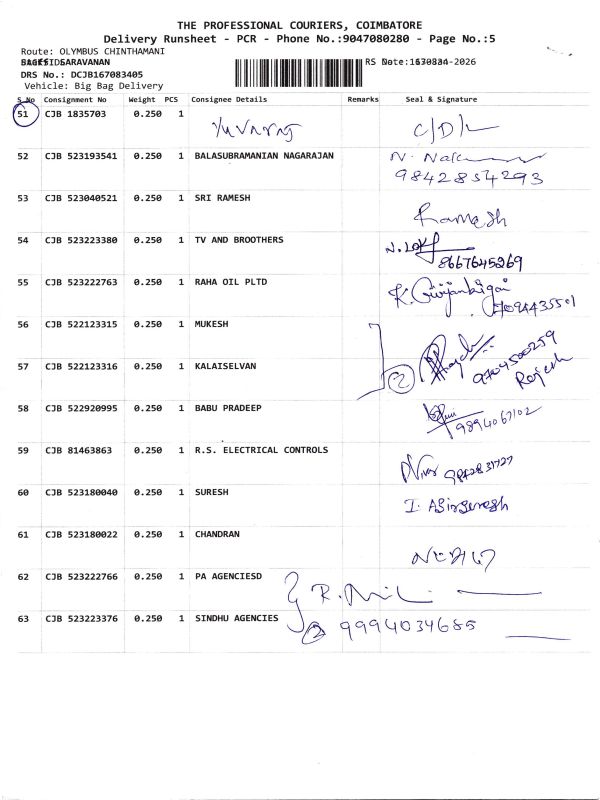 THE PROFESSIONAL COURIERS, COIMBATORE
Delivery Runsheet - PCR - Phone No.:9047080280 - Page No.:5
Route: OLYMBUS CHINTHAMANI
SARAVANAN
DRS No.: DCJB167083405
Vehicle: Big Bag Delivery
S.No Consignment No Weight PCS Consignee Details Remarks Seal & Signature
51 CJB 1835703 0.250 1 Yuvaraj C/D/
52 CJB 523193541 0.250 1 BALASUBRAMANIAN NAGARAJAN N.
9842854293
53 CJB 523040521 0.250 1 SRI RAMESH
Ramesh
54 CJB 523223380 0.250 1 TV AND BROOTHERS N.
8667645269
55 CJB 523222763 0.250 1 RAHA OIL PLTD K.
7094435501
56 CJB 522123315 0.250 1 MUKESH
57 CJB 522123316 0.250 1 KALAISELVAN 2 9704500259
Rajesh
58 CJB 522920995 0.250 1 BABU PRADEEP
9894067102
59 CJB 81463863 0.250 1 R.S. ELECTRICAL CONTROLS
9842831727
60 CJB 523180040 0.250 1 SURESH
61 CJB 523180022 0.250 1 CHANDRAN
62 CJB 523222766 0.250 1 PA AGENCIESD R.
63 CJB 523223376 0.250 1 SINDHU AGENCIES 2 9994034685